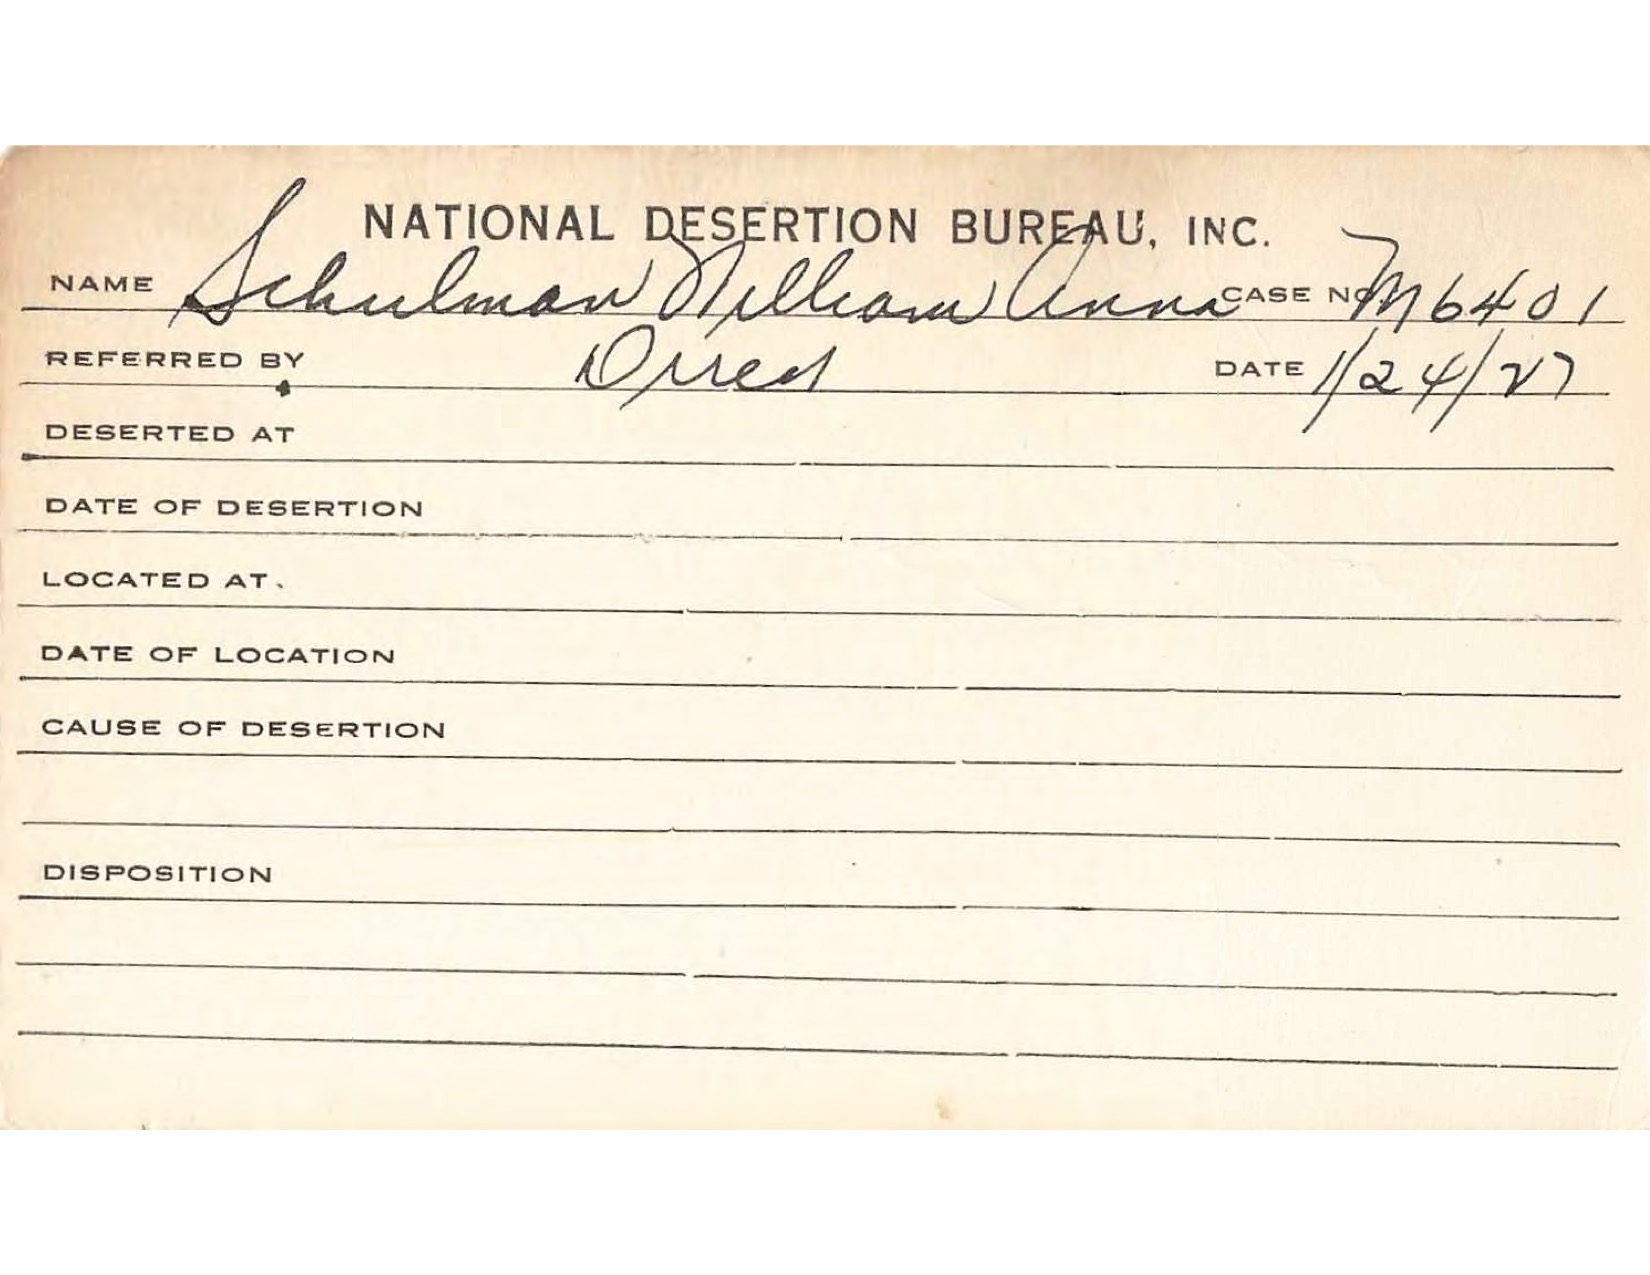 NATIONAL DESERTION BUREAU, INC.
NAME Schulman William Anna CASE NO. M6401
REFERRED BY Direct DATE 1/24/27
DESERTED AT
DATE OF DESERTION
LOCATED AT.
DATE OF LOCATION
CAUSE OF DESERTION
DISPOSITION